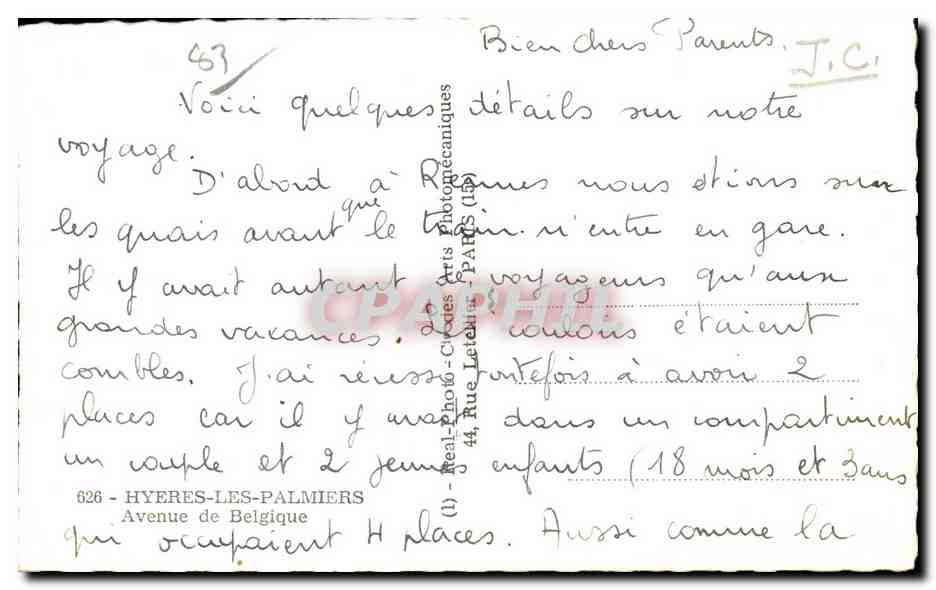 Bien chers Parents.
J.C.
83
Voici quelques détails sur notre
voyage.
D'abord à Rennes nous étions sur
les quais avant que le train n'entre en gare.
Il y avait autant de voyageurs qu'aux
grandes vacances. Les couloirs étaient
combles. J'ai réussi toutefois à avoir 2
places car il y avait dans un compartiment
un couple et 2 jeunes enfants (18 mois et 3 ans
qui occupaient 4 places. Aussi comme la
626 - HYERES-LES-PALMIERS
Avenue de Belgique
(1) - Real-Photo - Clichés Arts Photomécaniques
44, Rue Letellier - PARIS (15e)
CPAPHIL